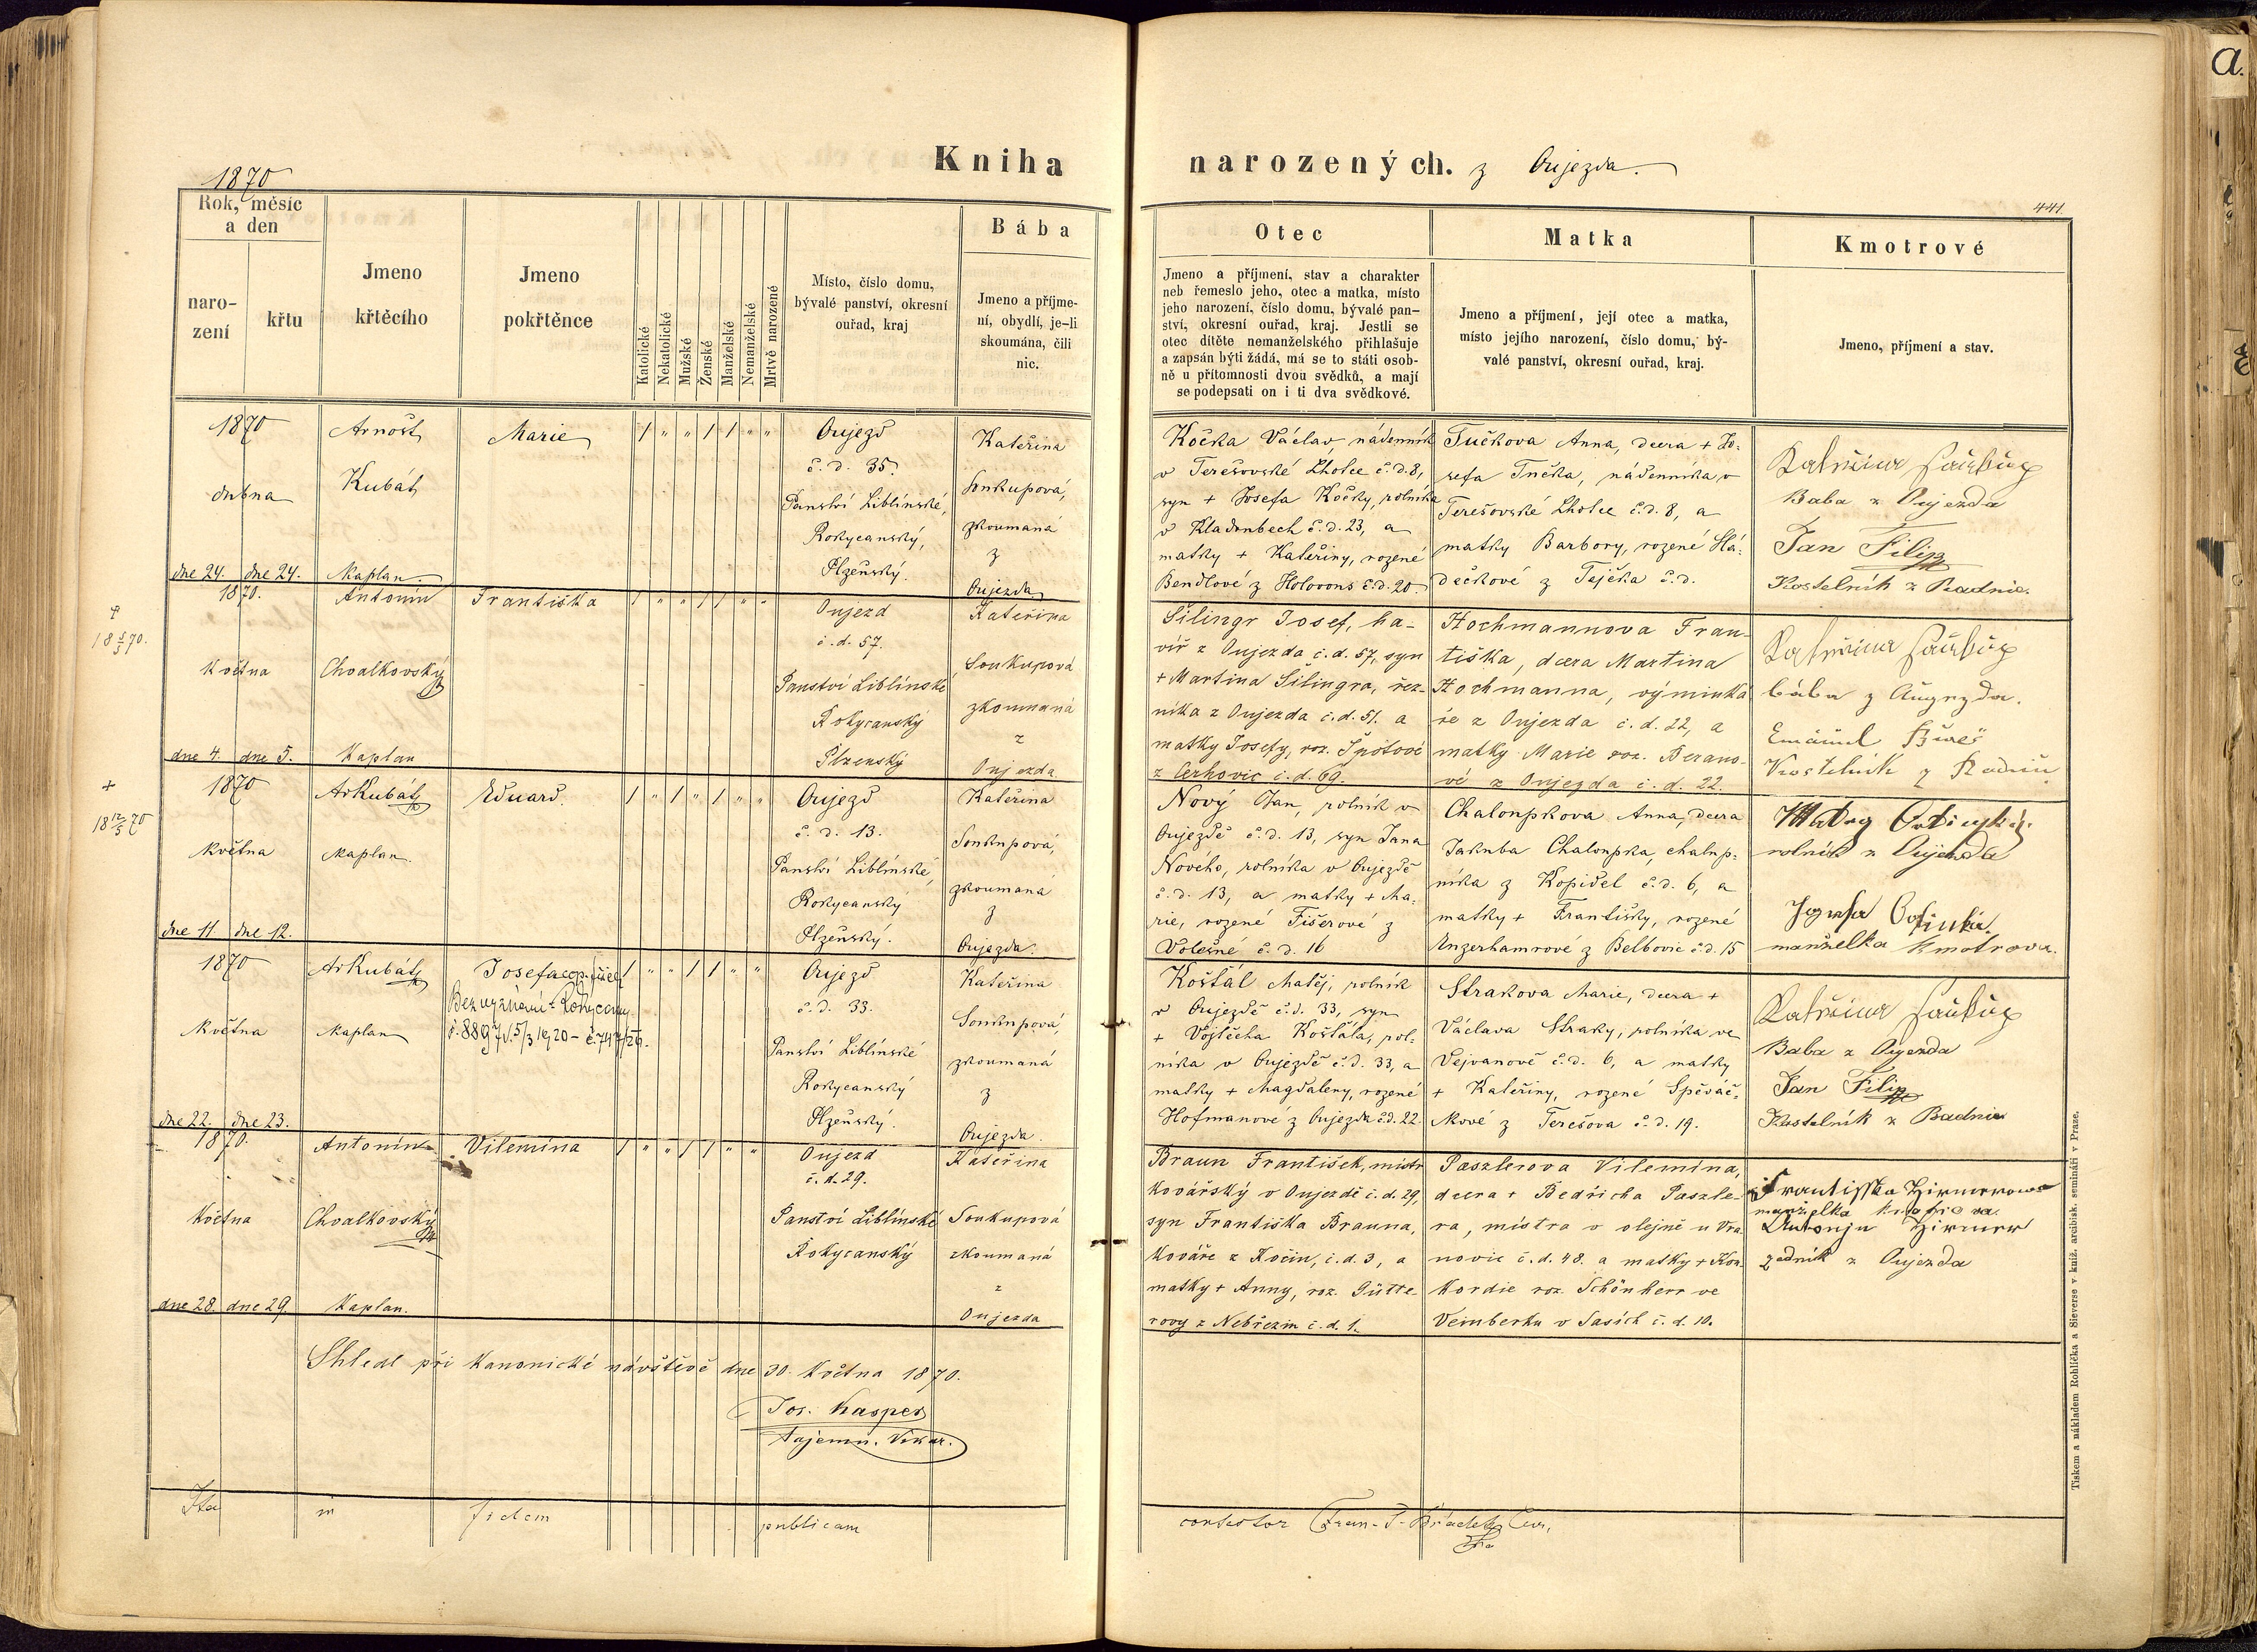 1870
Kniha narozených. z Oujezda.
441.
a.
Rok, měsíc
a den
naro-
zení
křtu
Jmeno
křtěcího
Jmeno
pokřtěnce
Katolické
Nekatolické
Mužské
Ženské
Manželské
Nemanželské
Mrtvě narozené
Místo, číslo domu,
bývalé panství, okresní
ouřad, kraj
Bába
Jmeno a příjme-
ní, obydlí, je-li
skoumána, čili
nic.
Otec
Jmeno a příjmení, stav a charakter
neb řemeslo jeho, otec a matka, místo
jeho narození, číslo domu, bývalé pan-
ství, okresní ouřad, kraj. Jestli se
otec dítěte nemanželského přihlašuje
a zapsán býti žádá, má se to státi osob-
ně u přítomnosti dvou svědků, a mají
se podepsati on i ti dva svědkové.
Matka
Jmeno a příjmení, její otec a matka,
místo jejího narození, číslo domu, bý-
valé panství, okresní ouřad, kraj.
Kmotrové
Jmeno, příjmení a stav.
1870
dubna
dne 24. dne 24.
Arnošt
Kubát
Kaplan.
Marie
/ " " / / " "
Oujezd
č. d. 35.
Panství Liblínské,
Rokycanský,
Plzeňský.
Kateřina
Soukupová,
zkoumaná
z
Oujezda
Kočka Václav, nádenník
v Terešovské Lhotce č.d. 8,
syn + Josefa Kočky, rolníka
v Kladrubech č.d. 23, a
matky + Kateřiny, rozené
Bendlové z Holovous č.d. 20.
Tučkova Anna, dcera + Jo-
sefa Tučka, nádenníka v
Terešovské Lhotce č.d. 8, a
matky Barbory, rozené Slá-
dečkové z Tejčka č.d.
Baba z Oujezda
Jan Filip
Kostelník z Radnic.
†
18 5/5 70.
1870.
Května
dne 4. dne 5.
Antonín
Chvalkovský
Kaplan
Františka
/ " " / / " "
Oujezd
č. d. 57.
Panství Liblínské
Rokycanský
Plzenský
Kateřina
Soukupová
zkoumaná
z
Oujezda
Šilingr Josef, ha-
víř z Oujezda č.d. 57, syn
+ Martina Šilingra, řez-
níka z Oujezda č.d. 51. a
matky Josefy, roz. Špótové
z Cerhovic č.d. 69.
Hochmannova Fran-
tiška, dcera Martina
Hochmanna, výminká
ře z Oujezda č.d. 22, a
matky Marie roz. Berano-
vé z Oujezda č.d. 22.
+
18 12/5 70
1870
Května
dne 11. dne 12.
ArKubát
Kaplan.
Eduard.
/ " / " / " "
Oujezd
č. d. 13.
Panství Liblínské,
Rokycanský
Plzeňský.
Kateřina
Soukupová,
zkoumaná
z
Oujezda.
Nový Jan, rolník v
Oujezdě č.d. 13, syn Jana
Nového, rolníka v Oujezdě
č.d. 13, a matky + Ma-
rie, rozené Fišerové z
Volešné č.d. 16
Chaloupkova Anna, dcera
Jakuba Chaloupka, chalup-
níka z Kopidel č.d. 6, a
matky + Františky, rozené
Enzerhamrové z Belbovic č.d. 15
rolník z Oujezda
manželka Kmotrova.
1870
Května
dne 22. dne 23.
ArKubát
Kaplan
Josefa
Bez vyznání - Rokycany
/ " " / / " "
Oujezd
č. d. 33.
Panství Liblínské
Rokycanský
Plzeňský.
Kateřina
Soukupová,
zkoumaná
z
Oujezda.
Košťál Matěj, rolník
v Oujezdě č.d. 33, syn
+ Vojtěcha Košťála, rol-
níka v Oujezdě č.d. 33, a
matky + Magdaleny, rozené
Hofmanové z Oujezda č.d. 22.
Strakova Marie, dcera +
Václava Straky, rolníka ve
Vejvanově č.d. 6, a matky
+ Kateřiny, rozené Spěváč-
kové z Terešova č.d. 19.
Baba z Oujezda
Jan Filip
Kostelník z Radnic
1870.
Května
dne 28. dne 29.
Antonín
Chvalkovský
Kaplan.
Vilemína
/ " " / / " "
Oujezd
č. d. 29.
Panství Liblínské
Rokycanský
Kateřina
Soukupová
zkoumaná
z
Oujezda
Braun František, mistr
Kovářský v Oujezdě č.d. 29,
syn Františka Brauna,
Kováře z Kočin, č.d. 3, a
matky + Anny, roz. Gütte-
rovy z Nebřezin č.d. 1.
Paszlerova Vilemína,
dcera + Bedřicha Paszle-
ra, místra v olejně u Vra
novic č.d. 48. a matky + Kon
kordie roz. Schönherr ve
Veimberku v Sasích č.d. 10.
zedník z Oujezda
Shledl při kanonické návštěvě dne 30. Května 1870.
Jos. Kasper
tajemn. Vikar.
Ita in fidem publicam
contestor
Tiskem a nákladem Rohlíčka a Sieverse v kníž. arcibisk. semináři v Praze.